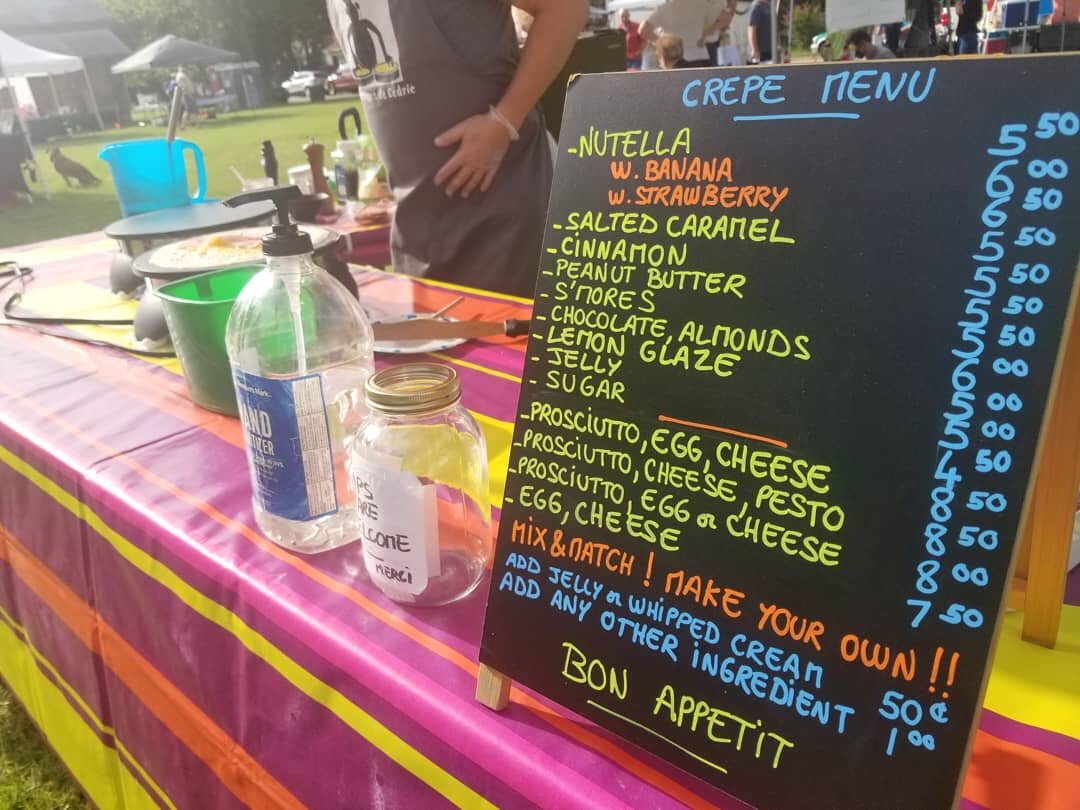 CREPE MENU
-NUTELLA 5 50
W. BANANA 6 00
W. STRAWBERRY 6 50
-SALTED CARAMEL 5 50
-CINNAMON 5 50
-PEANUT BUTTER 5 50
-S'MORES 5 50
-CHOCOLATE, ALMONDS 6 00
-LEMON GLAZE 6 00
-JELLY 5 00
-SUGAR 4 50
-PROSCIUTTO, EGG, CHEESE 8 50
-PROSCIUTTO, CHEESE, PESTO 8 50
-PROSCIUTTO, EGG or CHEESE 8 00
-EGG, CHEESE 7 50
MIX & MATCH ! MAKE YOUR OWN !!
ADD JELLY or WHIPPED CREAM 50 ¢
ADD ANY OTHER INGREDIENT 1 00
BON APPETIT
de Cédric
AND
TIZER
PS
ARE
LCOME
MERCI